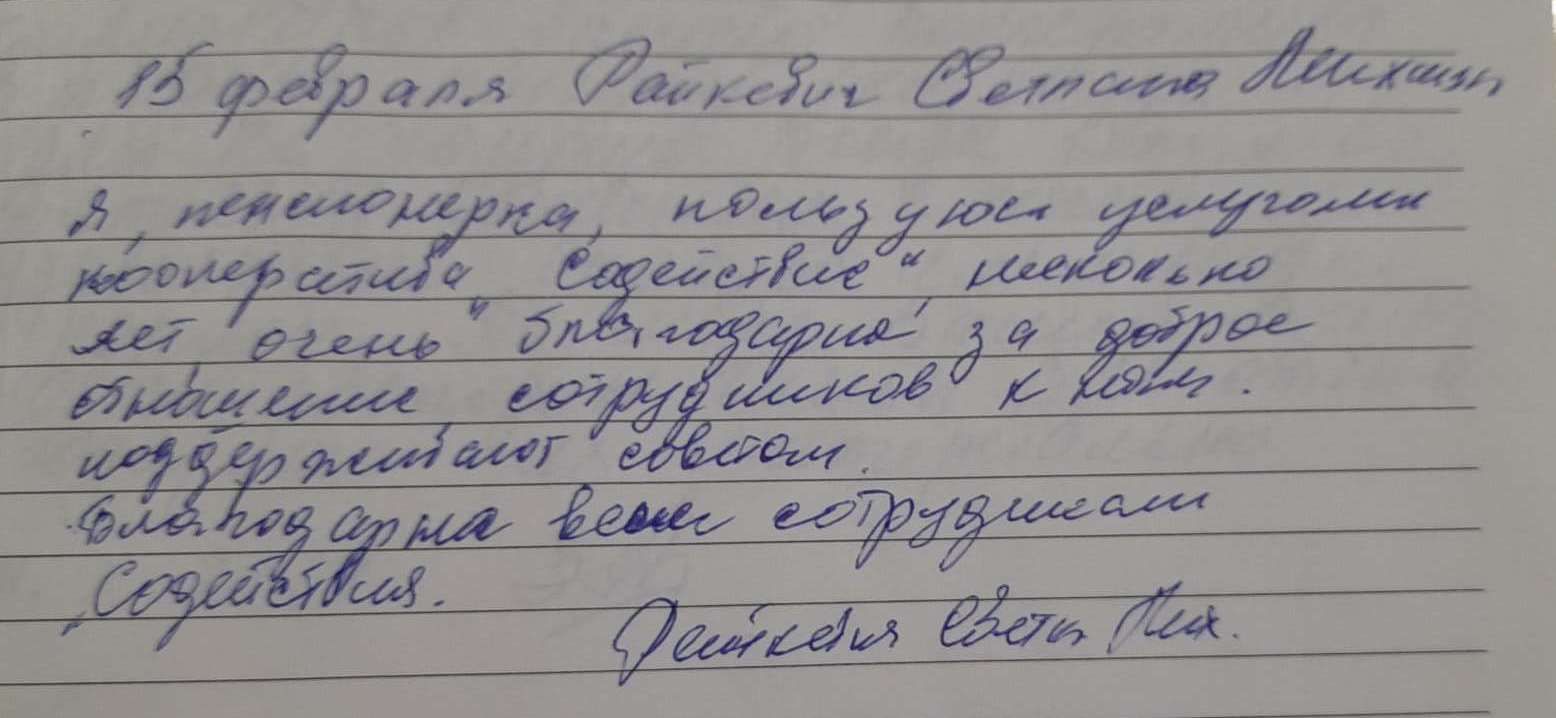 15 февраля Райкевич Светлана
Я, пенсионерка, пользуюсь услугами
кооператива „Содействие“, несколько
лет, очень благодарна за доброе
отношение сотрудников к нам.
поддерживают советом.
Благодарна всем сотрудникам
„Содействия.
Райкевич Свет Мих.